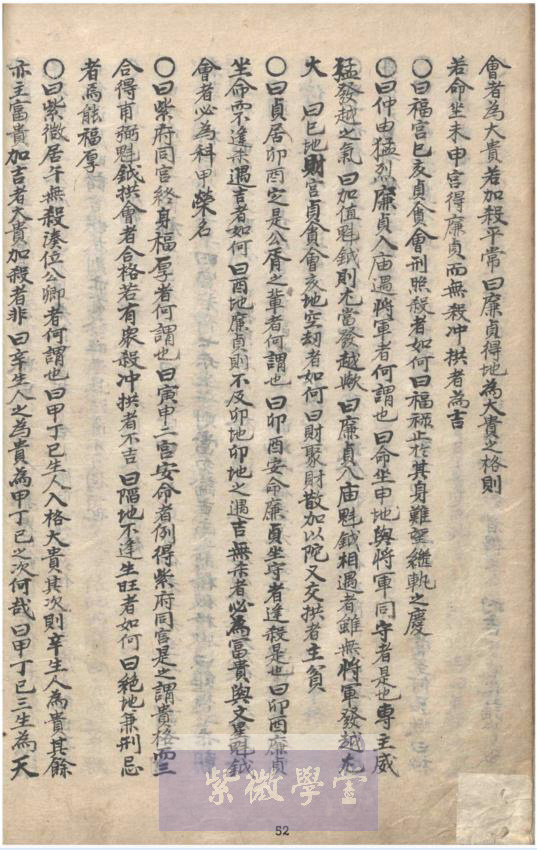 會者為大貴若加殺平常曰廉貞得地為大貴之格則
若命坐未申宮得廉貞而無殺沖拱者為吉
〇曰福宮巳亥貞貪會刑照殺者如何曰福祿止於其身難望繼軌之慶
〇曰仲由猛烈廉貞入庙遇將軍者何謂也曰命坐申地與將軍同守者是也專主威
猛發越之氣曰加值魁鉞則尤當發越歟曰廉貞入庙魁鉞相遇者雖無將軍發越尤
大 曰巳地財官貞貪會亥地空刼者如何曰財聚財散加以陀又交拱者主貧
〇曰貞居卯酉定是公胥之輩者何謂也曰卯酉安命廉貞坐守者逢殺是也曰卯酉廉貞
坐命而不逢杀遇吉者如何曰酉地廉貞則不及卯地卯地之遇吉無杀者必為富貴與文星魁鉞
會者必為科甲榮名
〇曰紫府同宮終身福厚者何謂也曰寅申二宮安命者例得紫府同宮是之謂貴格而三
合得甫弼魁鉞拱會者合格若有眾殺沖拱者不吉曰陷地不逢生旺者如何曰絶地兼刑忌
者焉能福厚
〇曰紫微居午無殺湊位公卿者何謂也曰甲丁巳生人入格大貴其次則辛生人為貴其餘
亦主富貴加吉者大貴加殺者非曰辛生人之為貴為甲丁巳之次何哉曰甲丁巳三生為天
紫微學堂
52